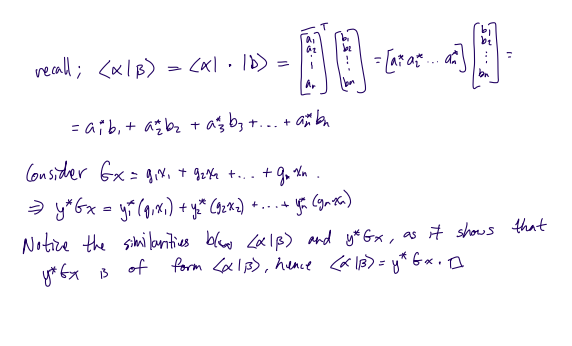 recall; ⟨α|β⟩ = ⟨α| · |b⟩ = [a₁ a₂ ⋮ aₙ]ᵀ [b₁ b₂ ⋮ bₙ] = [a₁* a₂* ... aₙ*] [b₁ b₂ ⋮ bₙ] =
= a₁*b₁ + a₂*b₂ + a₃*b₃ + ... + aₙ*bₙ
Consider Gx = g₁x₁ + g₂x₂ + ... + gₙxₙ.
⇒ y*Gx = y₁*(g₁x₁) + y₂*(g₂x₂) + ... + yₙ*(gₙxₙ)
Notice the similarities b/w ⟨α|β⟩ and y*Gx, as it shows that
y*Gx is of form ⟨α|β⟩, hence ⟨α|β⟩ = y*Gx. □